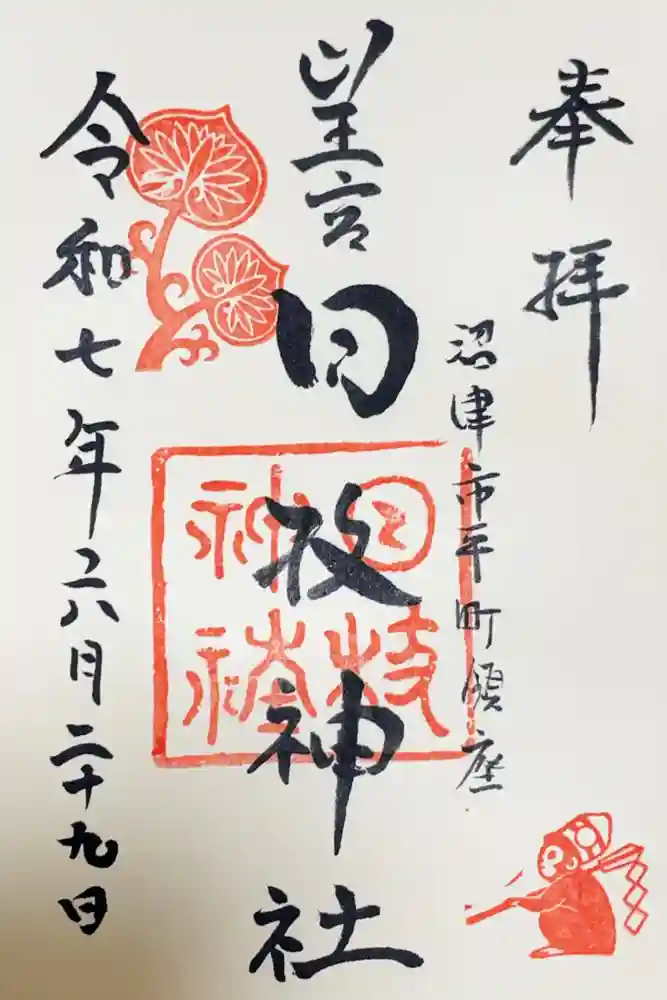 奉拝
沼津市平町鎮座
山王宮
日枝神社
令和七年六月二十九日
日枝
神社